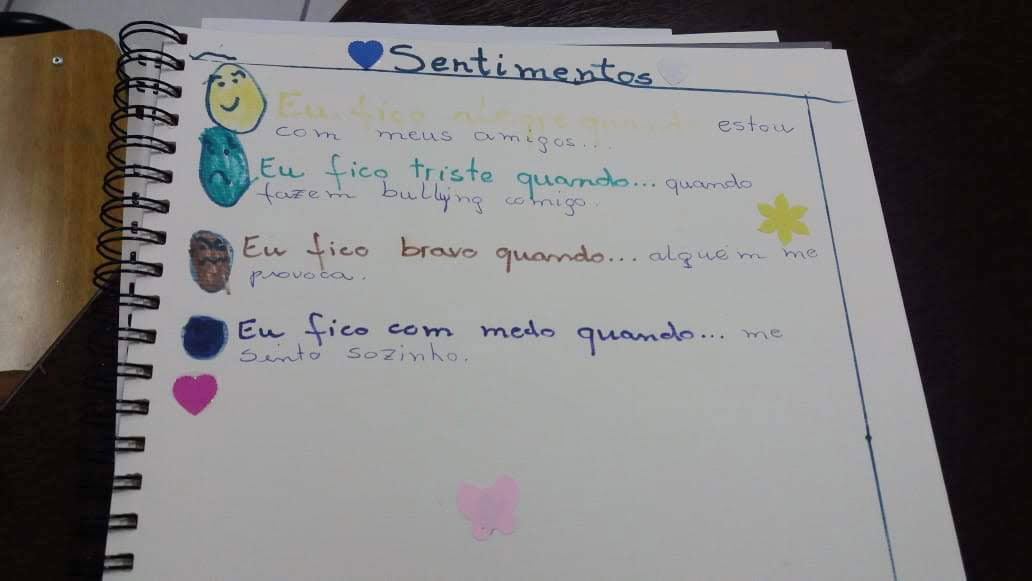 Sentimentos
Eu fico alegre quando estou
com meus amigos...
Eu fico triste quando... quando
fazem bullying comigo.
Eu fico bravo quando... alguém me
provoca.
Eu fico com medo quando... me
sinto sozinho.